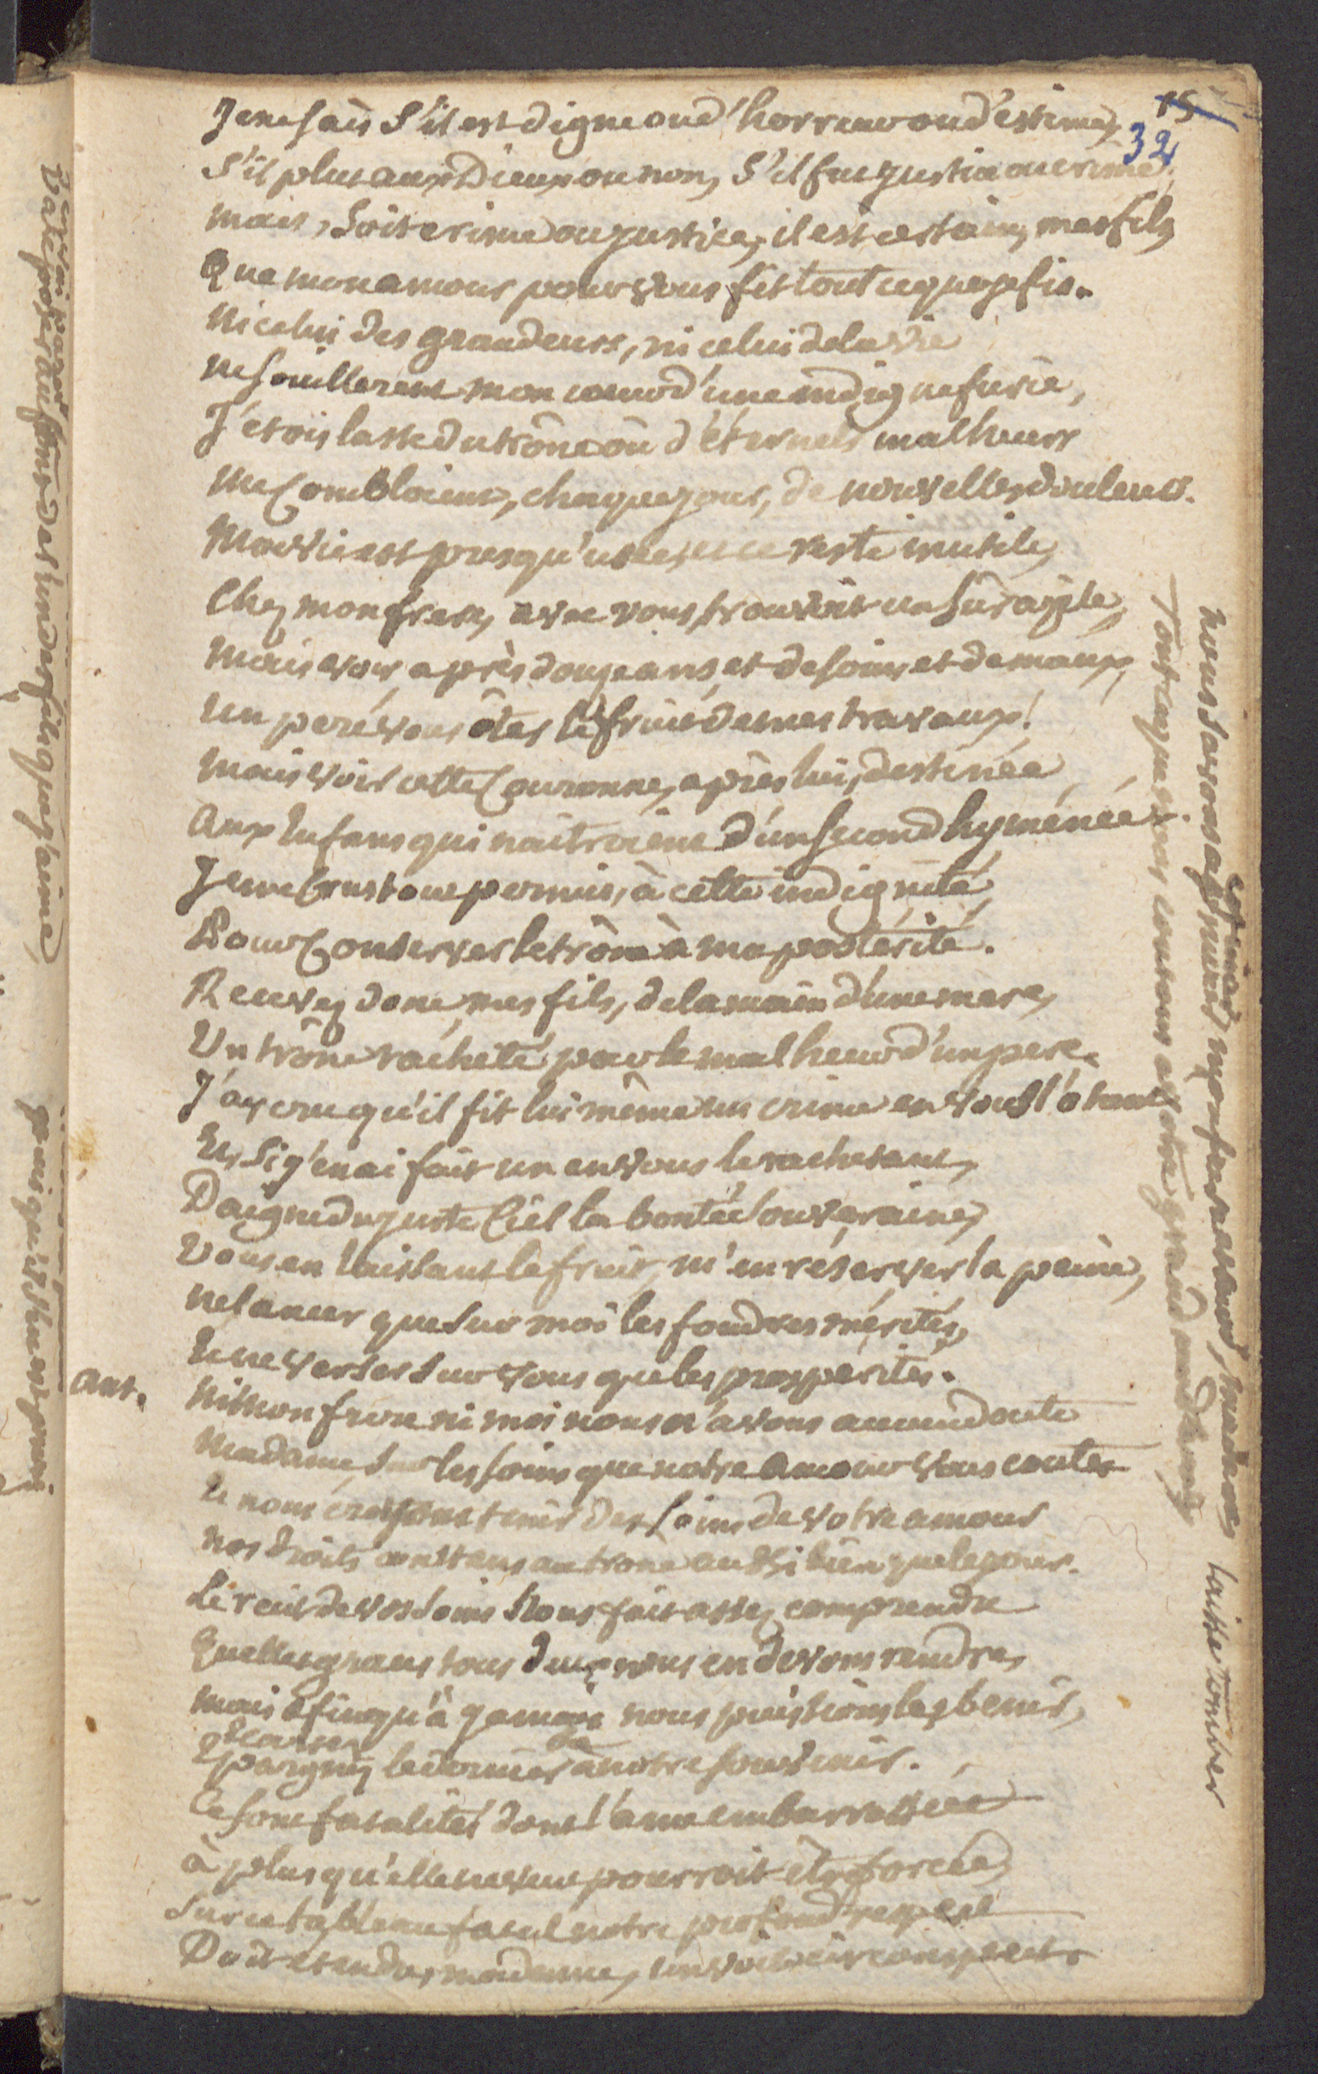 15
32
Je ne sais s'il est digne ou d'horreur ou d'estime,
S'il plut aux Dieux ou non, s'il fut justice ou crime;
mais, soit crime ou justice, il est certain, mes fils,
Que mon amour pour vous fit tout ce que je fis.
Ni celui des grandeurs, ni celui de la vie
ne souillerent mon coeur d'une indigne furie,
J'étois lasse du trône où d'éternels malheurs
me Combloient, chaque jour, de nouvelles douleurs.
Ma vie est presqu'usée, et ce reste inutile
Chez mon frere, avec vous, trouvoit un sûr azyle,
mais voir, après douze ans, et de soins et de maux,
un pere vous ôter le fruit de mes travaux!
mais voir cette Couronne, après lui, destinée
Aux Enfans qui naitroient d'un second hyménée.
Je me Crus tout permis, à cette indignité,
Pour Conserver le trône à ma postérité.
Recevez donc, mes fils, de la main d'une mere,
Un trône rácheté par le malheur d'un pere.
J'ay cru qu'il fit lui même un crime en vous l'ôtant
Et, si j'en ai fait un en vous le rachetant,
Daigne du juste Ciel la bonté souveraine,
Vous en laissant le fruit, m'en réserver la peine,
ne lancer que sur moi les foudres mérités,
Et ne verser sur vous que les prospérités.
Ant. Ni mon frere ni moi nous n'avons aucun doute
Madame, sur les soins que notre Amour vous coute
nos droits au trone aussi bien que le jour.
Le recit de vos soins Nous fait assez comprendre
Quelles graces tous deux nous en devons rendre,
mais afin qu'à jamais nous puissions les benir,
Epargnez le dernier à notre souvenir.
Ce sont fatalités dont l'ame embarrassée
à plus qu'elle ne veut pourroit être forcée,
Sur ce tableau fatal notre profond respect
Doit etendre, madame, un voile circonspect.
nous savons mon frere madame laisse tomber
Tout ce que